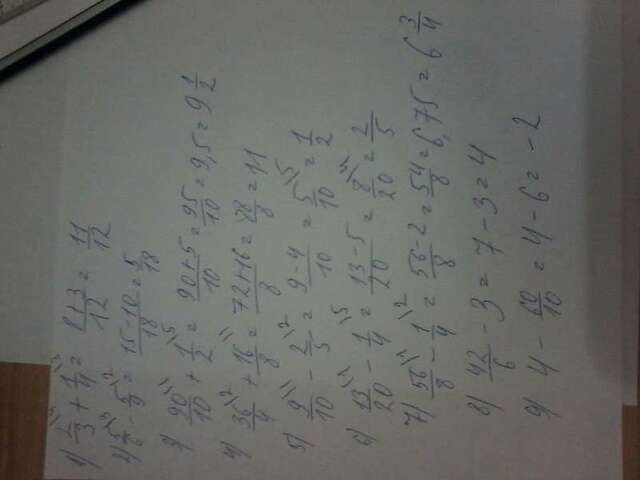 1) 2/3\4 + 1/4\3 = 8+3/12 = 11/12
2) 5/6\3 - 5/9\2 = 15-10/18 = 5/18
3) 90/10\1 + 1/2\5 = 90+5/10 = 95/10 = 9,5 = 9 1/2
4) 36/4\2 + 16/8\1 = 72+16/8 = 88/8 = 11
5) 9/10\1 - 2/5\2 = 9-4/10 = 5/10\5 = 1/2
6) 13/20\1 - 1/4\5 = 13-5/20 = 8/20\4 = 2/5
7) 56/8\1 - 1/4\2 = 56-2/8 = 54/8 = 6,75 = 6 3/4
8) 42/6 - 3 = 7-3 = 4
9) 4 - 60/10 = 4-6 = -2